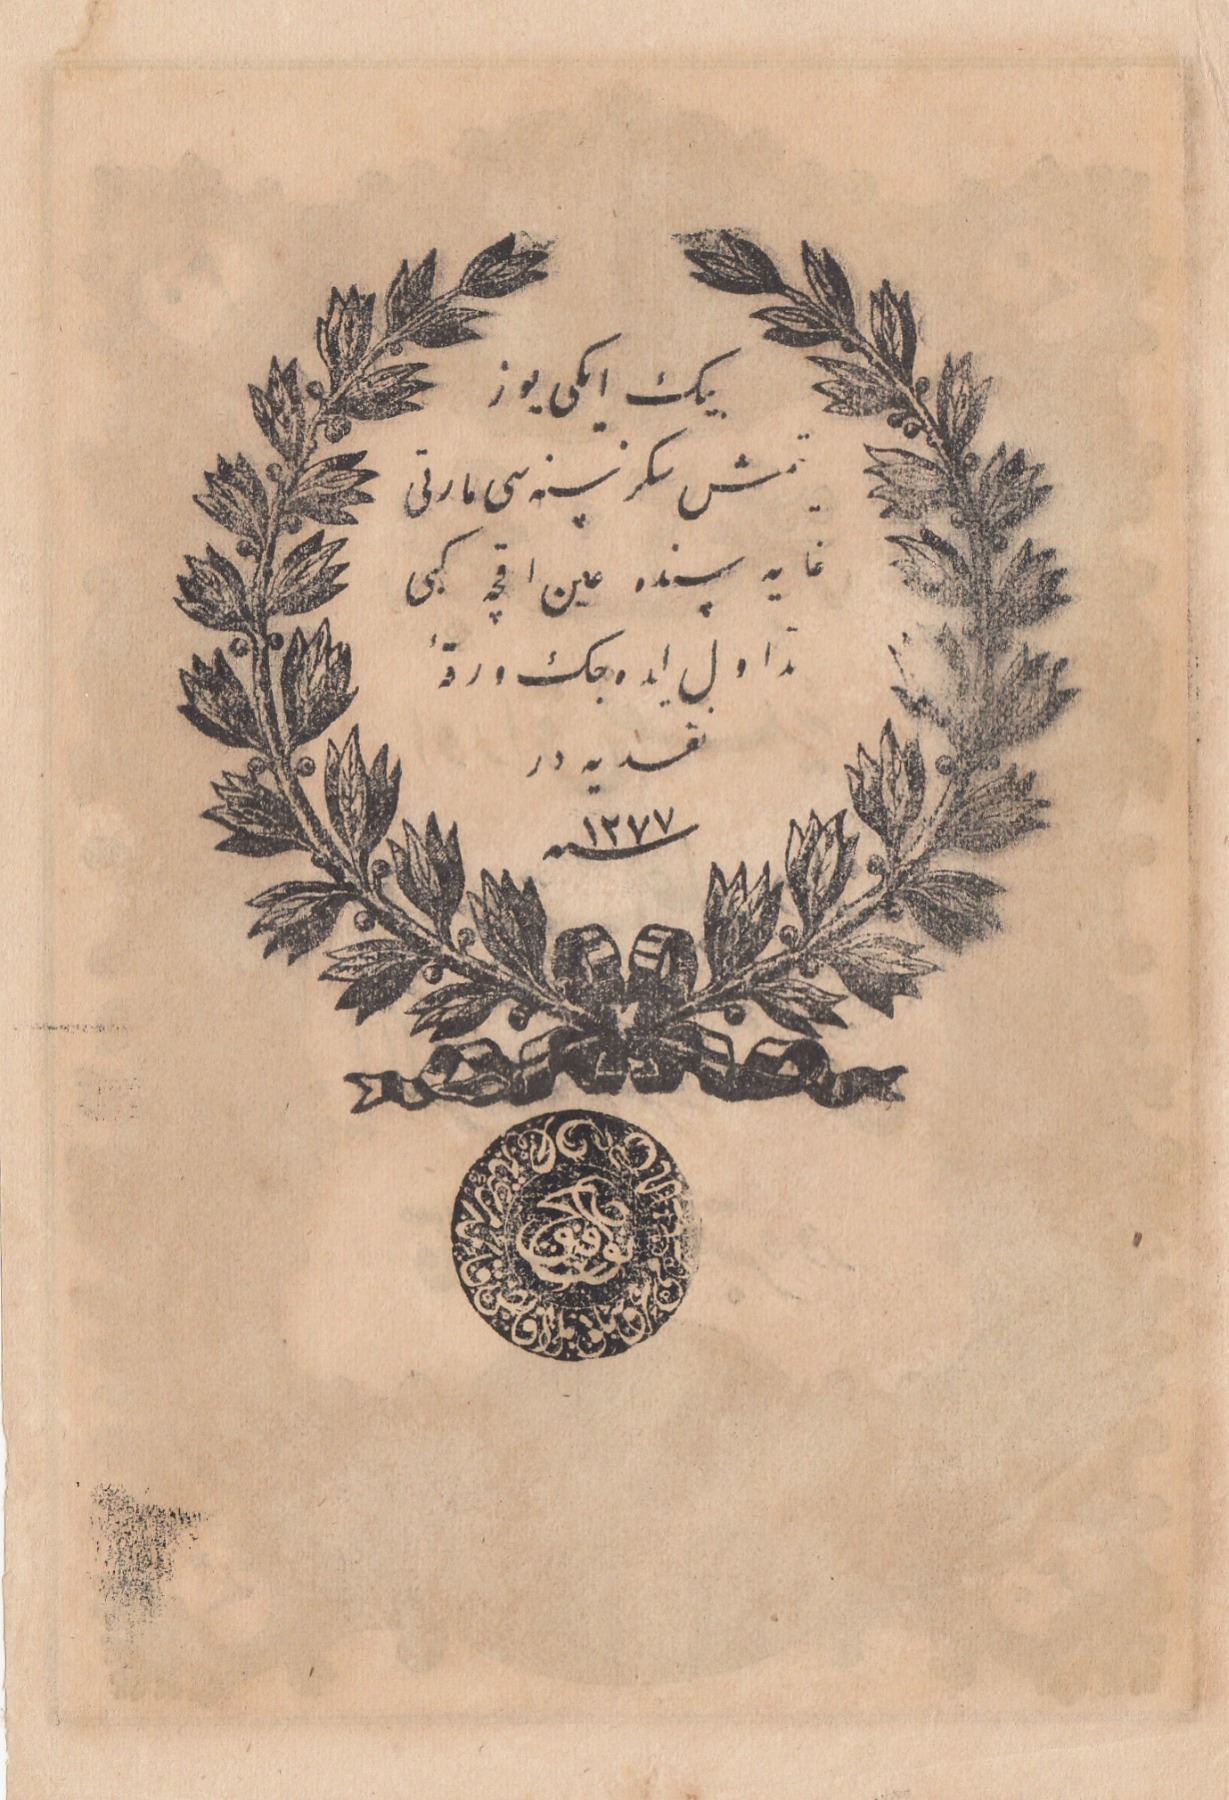 بیك ایکی یوز
یتمش سکز سنه سی مارتی
غایه سنده عین اقچه کبی
تداول ایده جك ورقۀ
نقدیه در
سنه ١٢٧٧